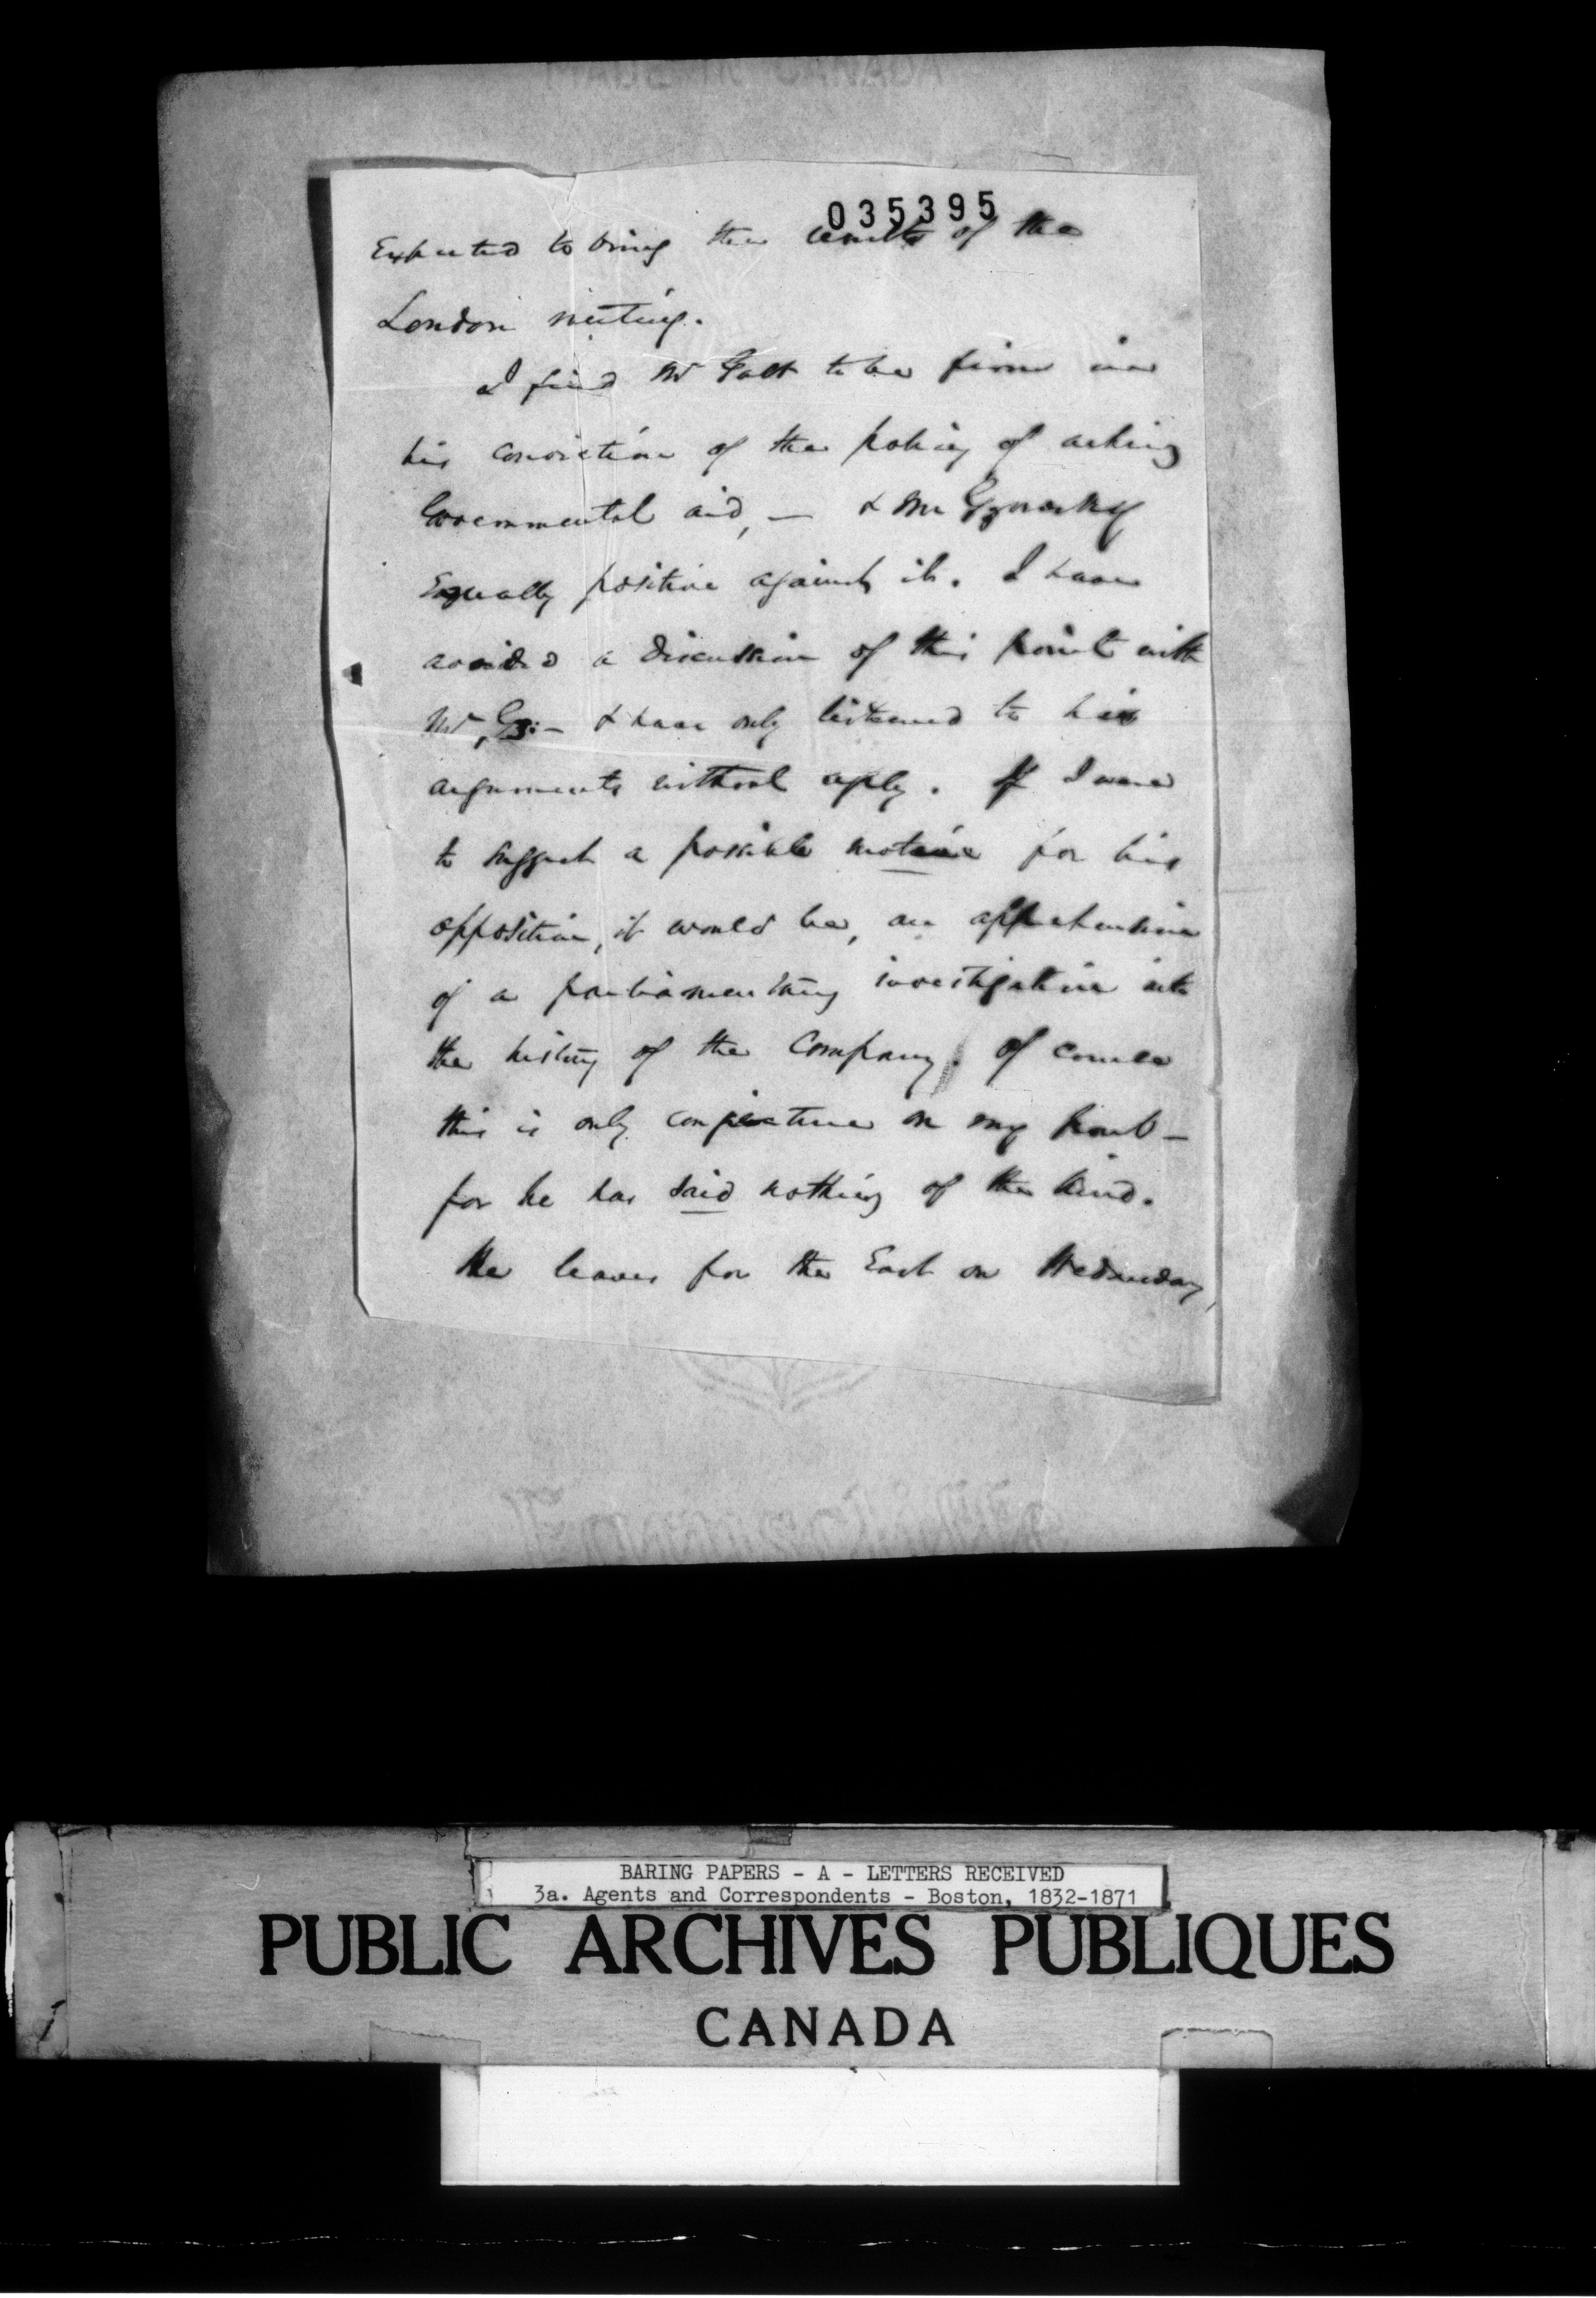 035395
Expected to bring the results of the
London meeting.
I find Mr Galt to be firm in
his conviction of the policy of asking
Governmental aid, — & Mr Gzowski
Equally positive against it. I have
avoided a discussion of this point with
Mr Gz:— & have only listened to his
arguments without reply. If I were
to suggest a possible motive for his
opposition, it would be, an apprehension
of a parliamentary investigation into
the history of the Company. Of course
this is only conjecture on my part —
for he has said nothing of the kind.
He leaves for the East on Wednesday,
BARING PAPERS - A - LETTERS RECEIVED
3a. Agents and Correspondents - Boston, 1832-1871
PUBLIC ARCHIVES PUBLIQUES
CANADA